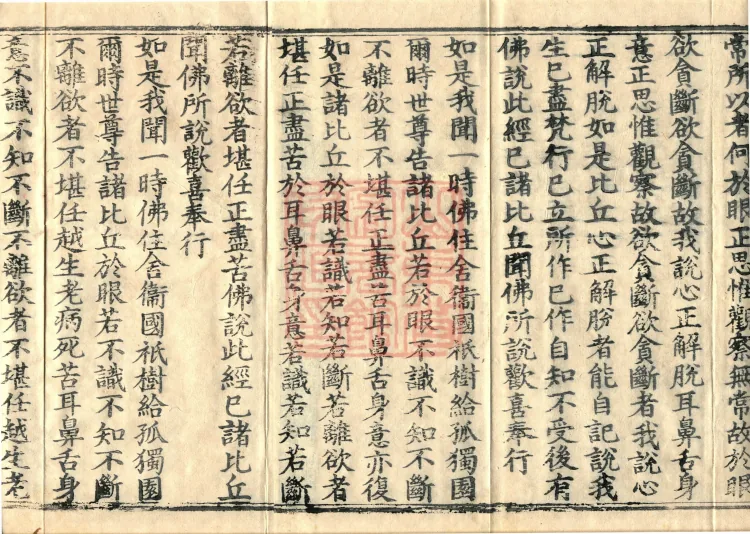 常所以者何於眼正思惟觀察無常故於眼
欲貪斷欲貪斷故我說心正解脫耳鼻舌身
意正思惟觀察故欲貪斷欲貪斷者我說心
正解脫如是比丘心正解脫者能自記說我
生已盡梵行已立所作已作自知不受後有
佛說此經已諸比丘聞佛所說歡喜奉行
如是我聞一時佛住舍衞國祇樹給孤獨園
爾時世尊告諸比丘若於眼不識不知不斷
不離欲者不堪任正盡苦耳鼻舌身意亦復
如是諸比丘於眼若識若知若斷若離欲者
堪任正盡苦於耳鼻舌身意若識若知若斷
若離欲者堪任正盡苦佛說此經已諸比丘
聞佛所說歡喜奉行
如是我聞一時佛住舍衞國祇樹給孤獨園
爾時世尊告諸比丘於眼若不識不知不斷
不離欲者不堪任越生老病死苦耳鼻舌身
意不識不知不斷不離欲者不堪任越生老